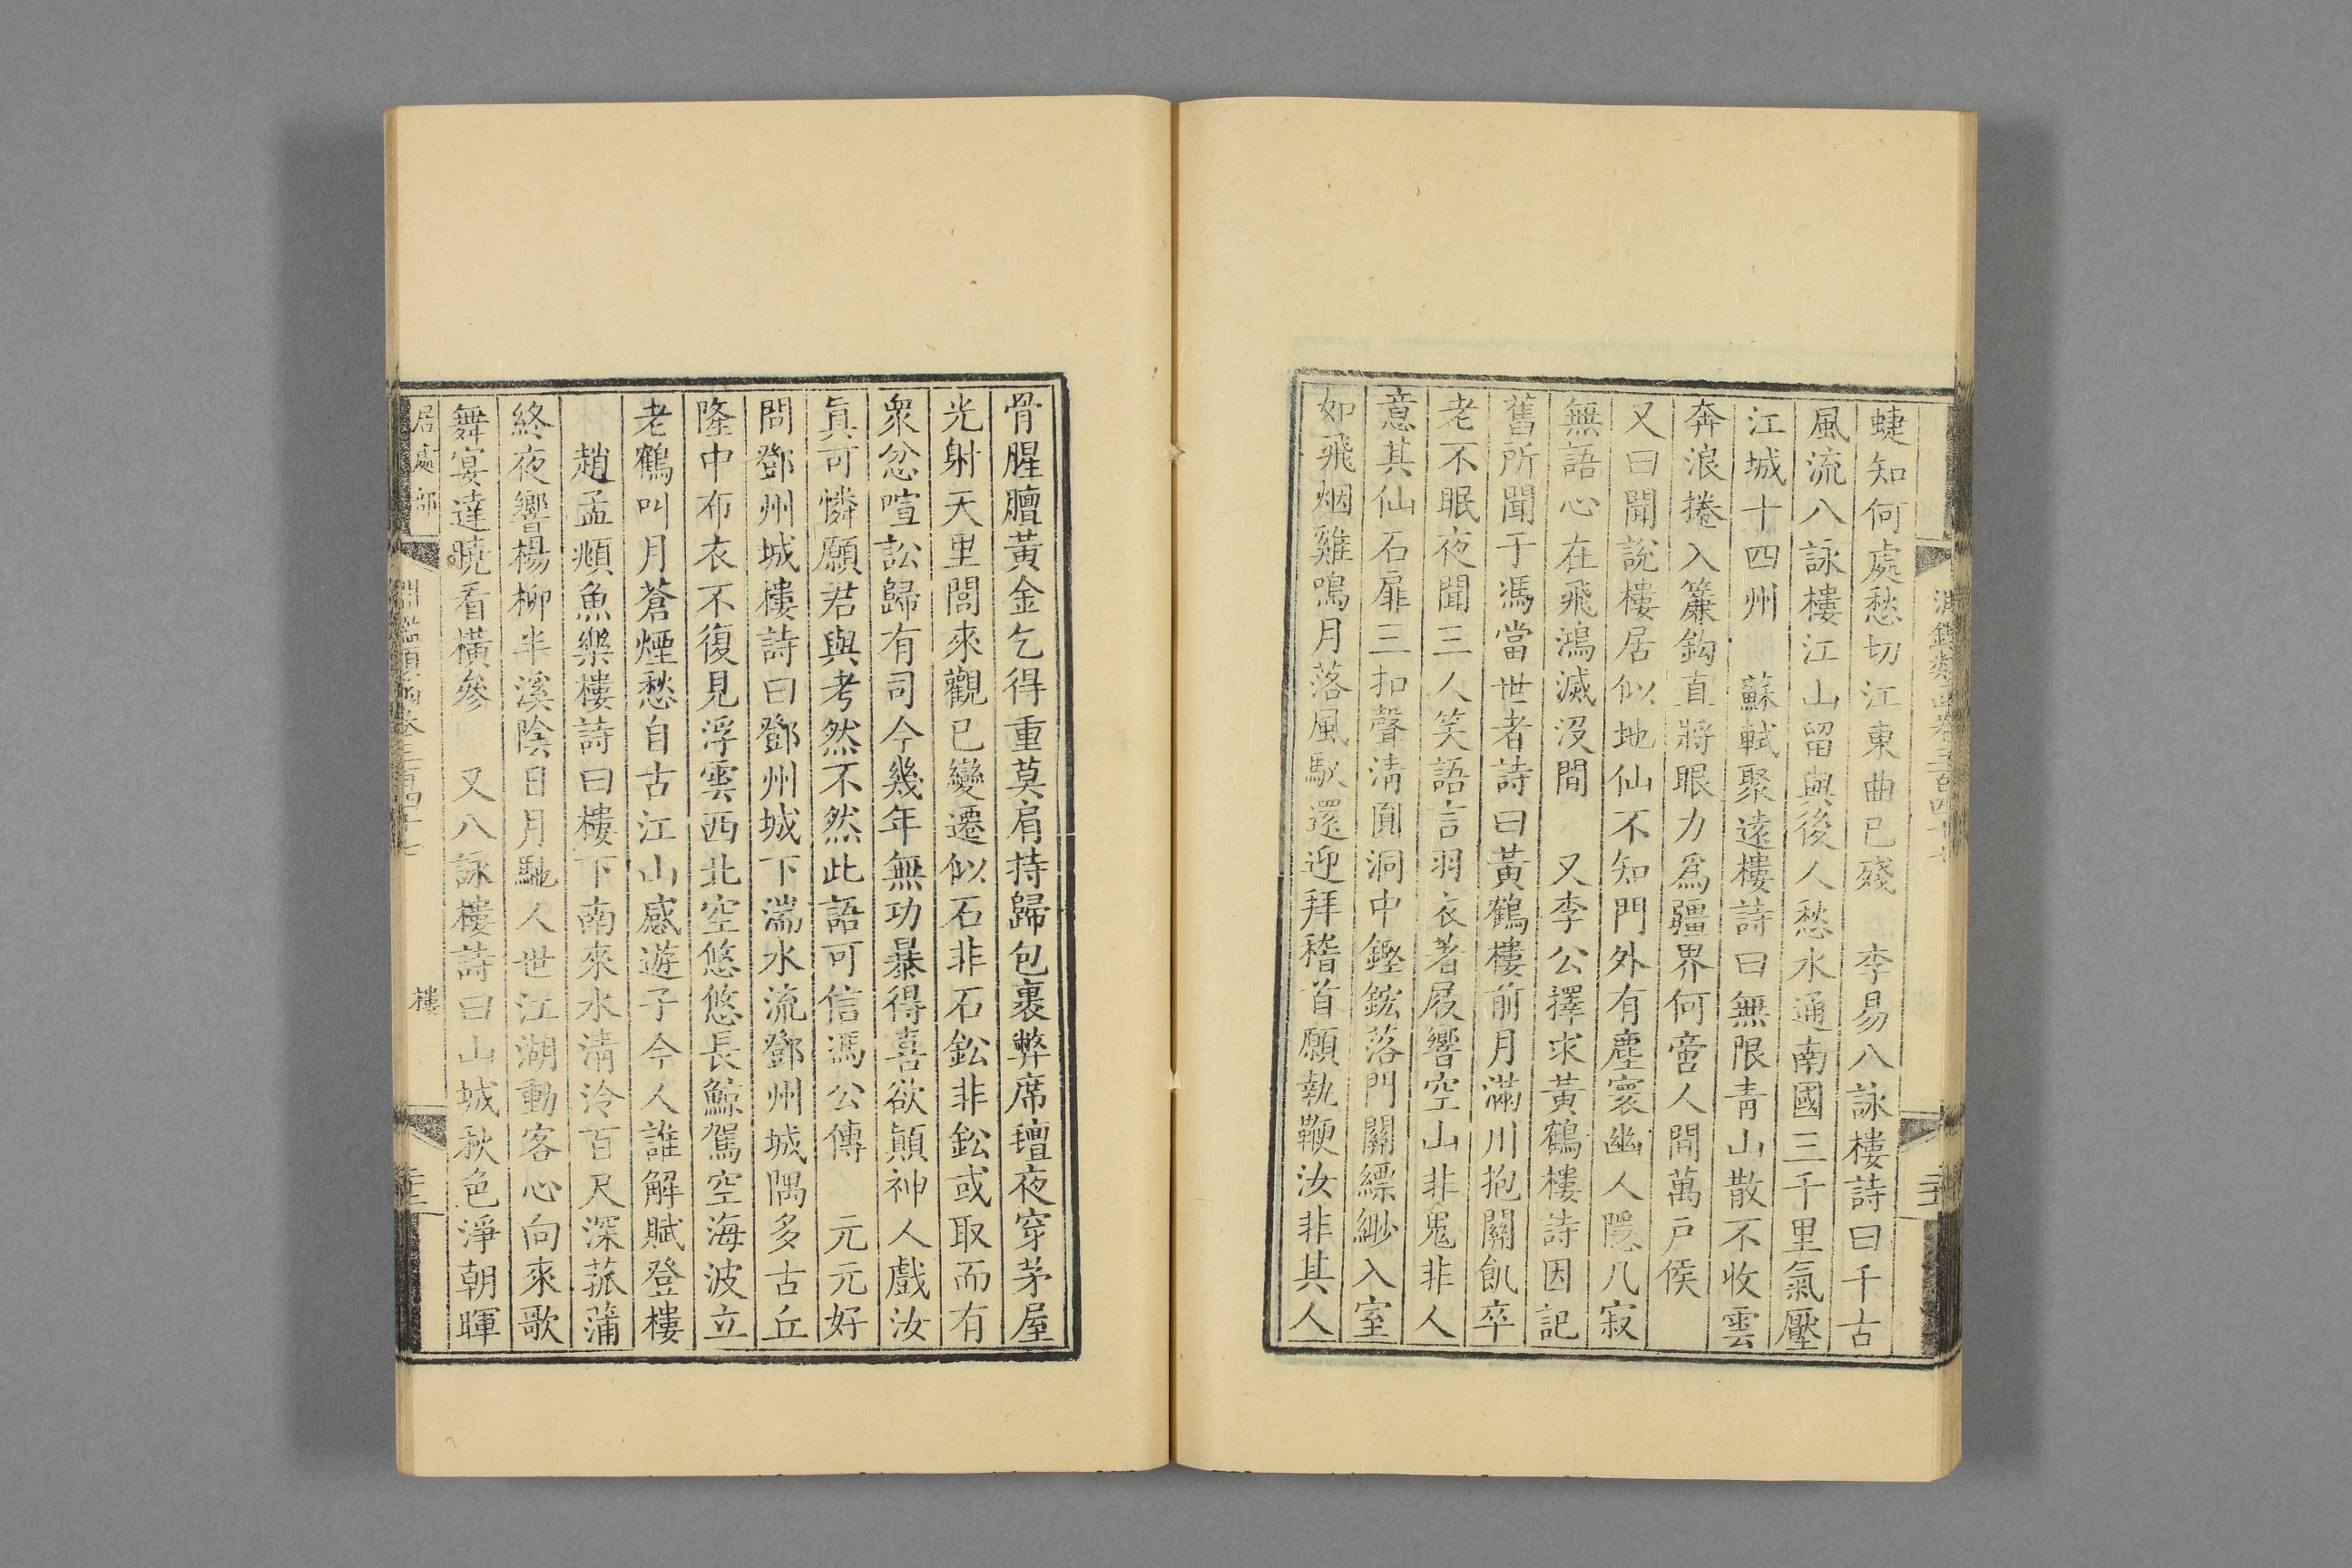 蜨知何處愁切江東曲已殘　李易八詠樓詩曰千古
風流八詠樓江山留與後人愁水通南國三千里氣壓
江城十四州　蘇軾聚遠樓詩曰無限青山散不收雲
奔浪捲入簾鈎直將眼力爲疆界何啻人間萬戸侯
又曰聞說樓居似地仙不知門外有塵寰幽人隱几寂
無語心在飛鴻滅沒間　又李公擇求黃鶴樓詩因記
舊所聞于馮當世者詩曰黃鶴樓前月滿川抱關飢卒
老不眠夜聞三人笑語言羽衣著屐響空山非鬼非人
意其仙石扉三扣聲清圓洞中鏗鈜落門關縹緲入室
如飛烟雞鳴月落風馭還迎拜稽首願執鞭汝非其人
骨腥膻黃金乞得重莫肩持歸包裹弊席氊夜穿茅屋
光射天里閭來觀已變遷似石非石鈆非鈆或取而有
衆忿喧訟歸有司今幾年無功暴得喜欲顚神人戲汝
眞可憐願君與考然不然此語可信馮公傳　元元好
問鄧州城樓詩曰鄧州城下湍水流鄧州城隅多古丘
隆中布衣不復見浮雲西北空悠悠長鯨駕空海波立
老鶴叫月蒼煙愁自古江山感遊子今人誰解賦登樓
趙孟頫魚樂樓詩曰樓下南來水清泠百尺深菰蒲
終夜響楊柳半溪陰日月馳人世江湖動客心向來歌
舞宴達曉看橫參　又八詠樓詩曰山城秋色淨朝暉
居處部　淵鑑類函卷三百四十七　樓